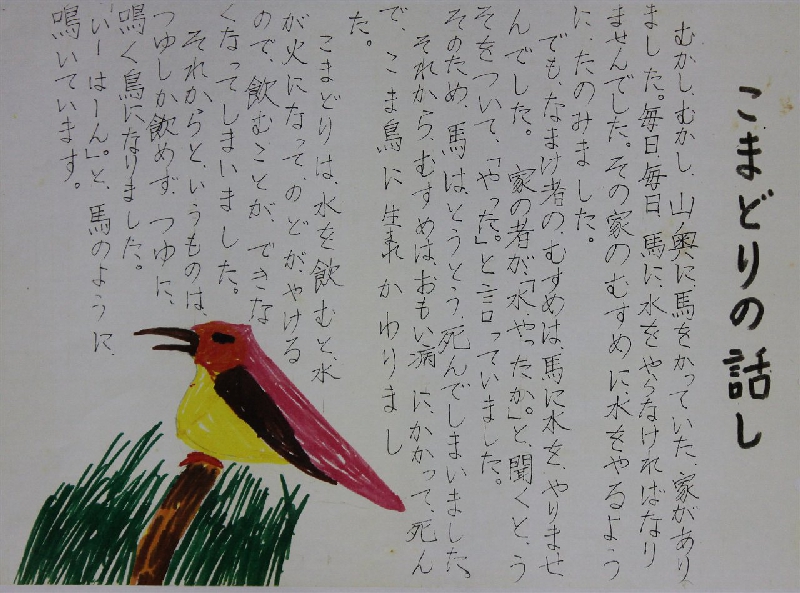 こまどりの話し
むかし、むかし、山奥に馬をかっていた、家があり
ました。毎日毎日、馬に、水をやらなければなり
ませんでした。その家のむすめに、水をやるよう
に、たのみました。
でも、なまけ者の、むすめは、馬に水を、やりませ
んでした。家の者が、「水、やったか。」と、聞くと、う
そをついて、「やった。」と言っていました。
そのため、馬は、とうとう、死んでしまいました。
それから、むすめは、おもい病にかかって、死ん
で、こま鳥に生れかわりまし
た。
こまどりは、水を飲むと、水
が火になってのどが、やける
ので、飲むことが、できな
くなってしまいました。
それからと、いうものは、
つゆしか飲めず、つゆに、
鳴く鳥になりました。
「いーはーん」。と、馬のように、
鳴いています。